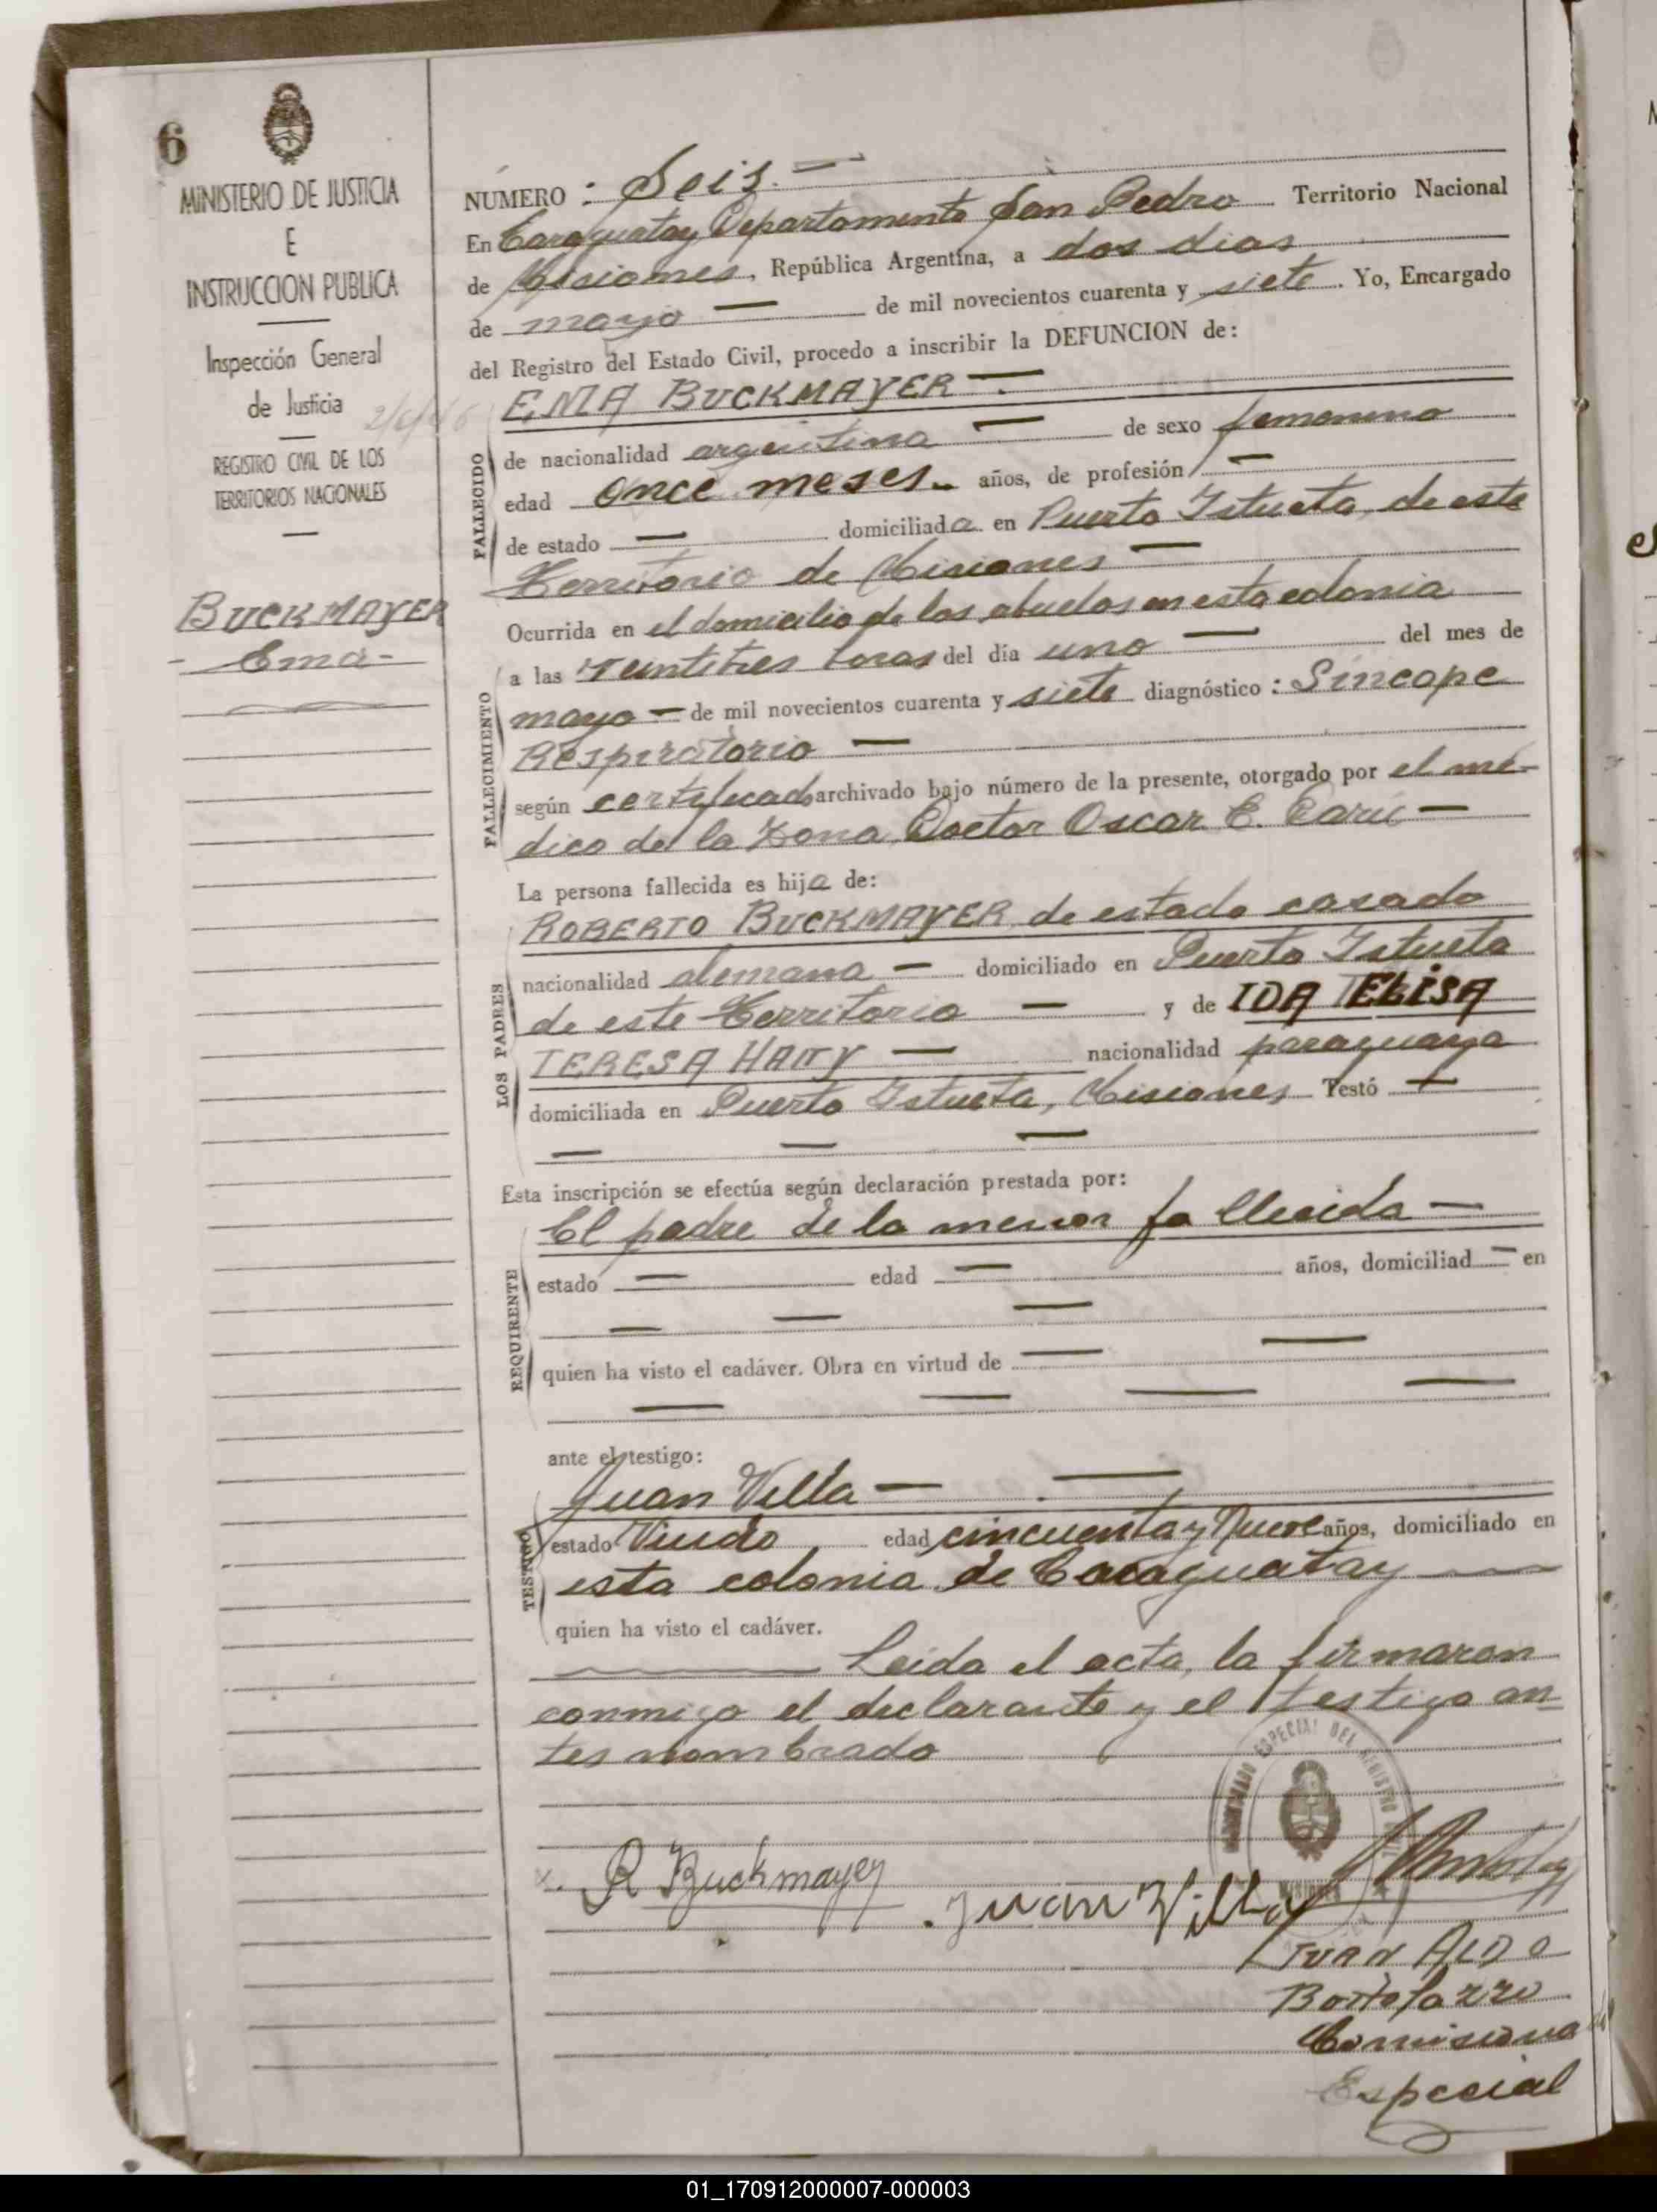 6
MINISTERIO DE JUSTICIA
E
INSTRUCCION PUBLICA
Inspección General
de Justicia
REGISTRO CIVIL DE LOS
TERRITORIOS NACIONALES
BUCKMAYER
- Ema -
NUMERO : Seis. —
En Caraguatay Departamento San Pedro Territorio Nacional
de Misiones, República Argentina, a dos dias
de mayo — de mil novecientos cuarenta y siete. Yo, Encargado
del Registro del Estado Civil, procedo a inscribir la DEFUNCION de:
FALLECIDO
EMA BUCKMAYER —
de nacionalidad argentina — de sexo femenino
edad once meses. años, de profesión —
de estado — domiciliada en Puerto Istueta, de este
Territorio de Misiones —
FALLECIMIENTO
Ocurrida en el domicilio de los abuelos en esta colonia
a las veintitres horas del día uno — del mes de
mayo — de mil novecientos cuarenta y siete diagnóstico : Síncope
Respiratorio —
según certificado archivado bajo número de la presente, otorgado por el mé-
dico de la Zona, Doctor Oscar E. —
La persona fallecida es hija de:
LOS PADRES
ROBERTO BUCKMAYER, de estado casado
nacionalidad alemana — domiciliado en Puerto Istueta
de este Territorio — y de IDA ELISA
TERESA — nacionalidad paraguaya
domiciliada en Puerto Istueta, Misiones Testó —
— — —
Esta inscripción se efectúa según declaración prestada por:
REQUIRENTE
El padre de la menor fallecida —
estado — edad — años, domiciliad — en
— — —
quien ha visto el cadáver. Obra en virtud de — —
— — — —
ante el testigo:
TESTIGO
Juan Villa — —
estado Viudo edad cincuenta y Nueve años, domiciliado en
esta colonia de Caraguatay —
quien ha visto el cadáver.
— Leida el acta, la firmaron
conmigo el declarante y el testigo an
tes nombrado
ESPECIAL DEL REGISTRO CIVIL
MISIONES
R Buckmayer
Juan Villa
JUAN ALDO
Bortolazzo
Comisionado
Especial
01_170912000007-000003